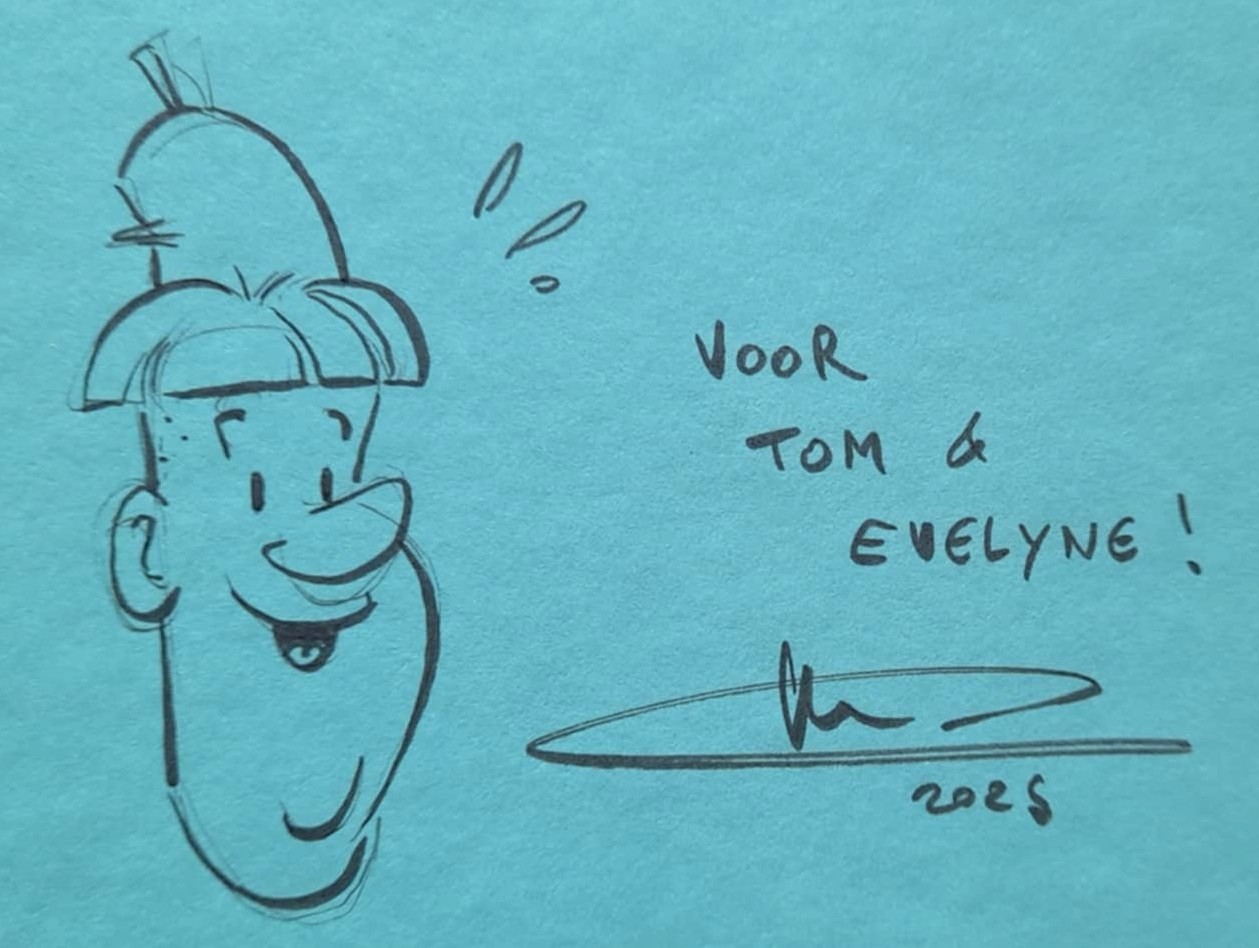 VOOR
TOM &
EVELYNE!
2025